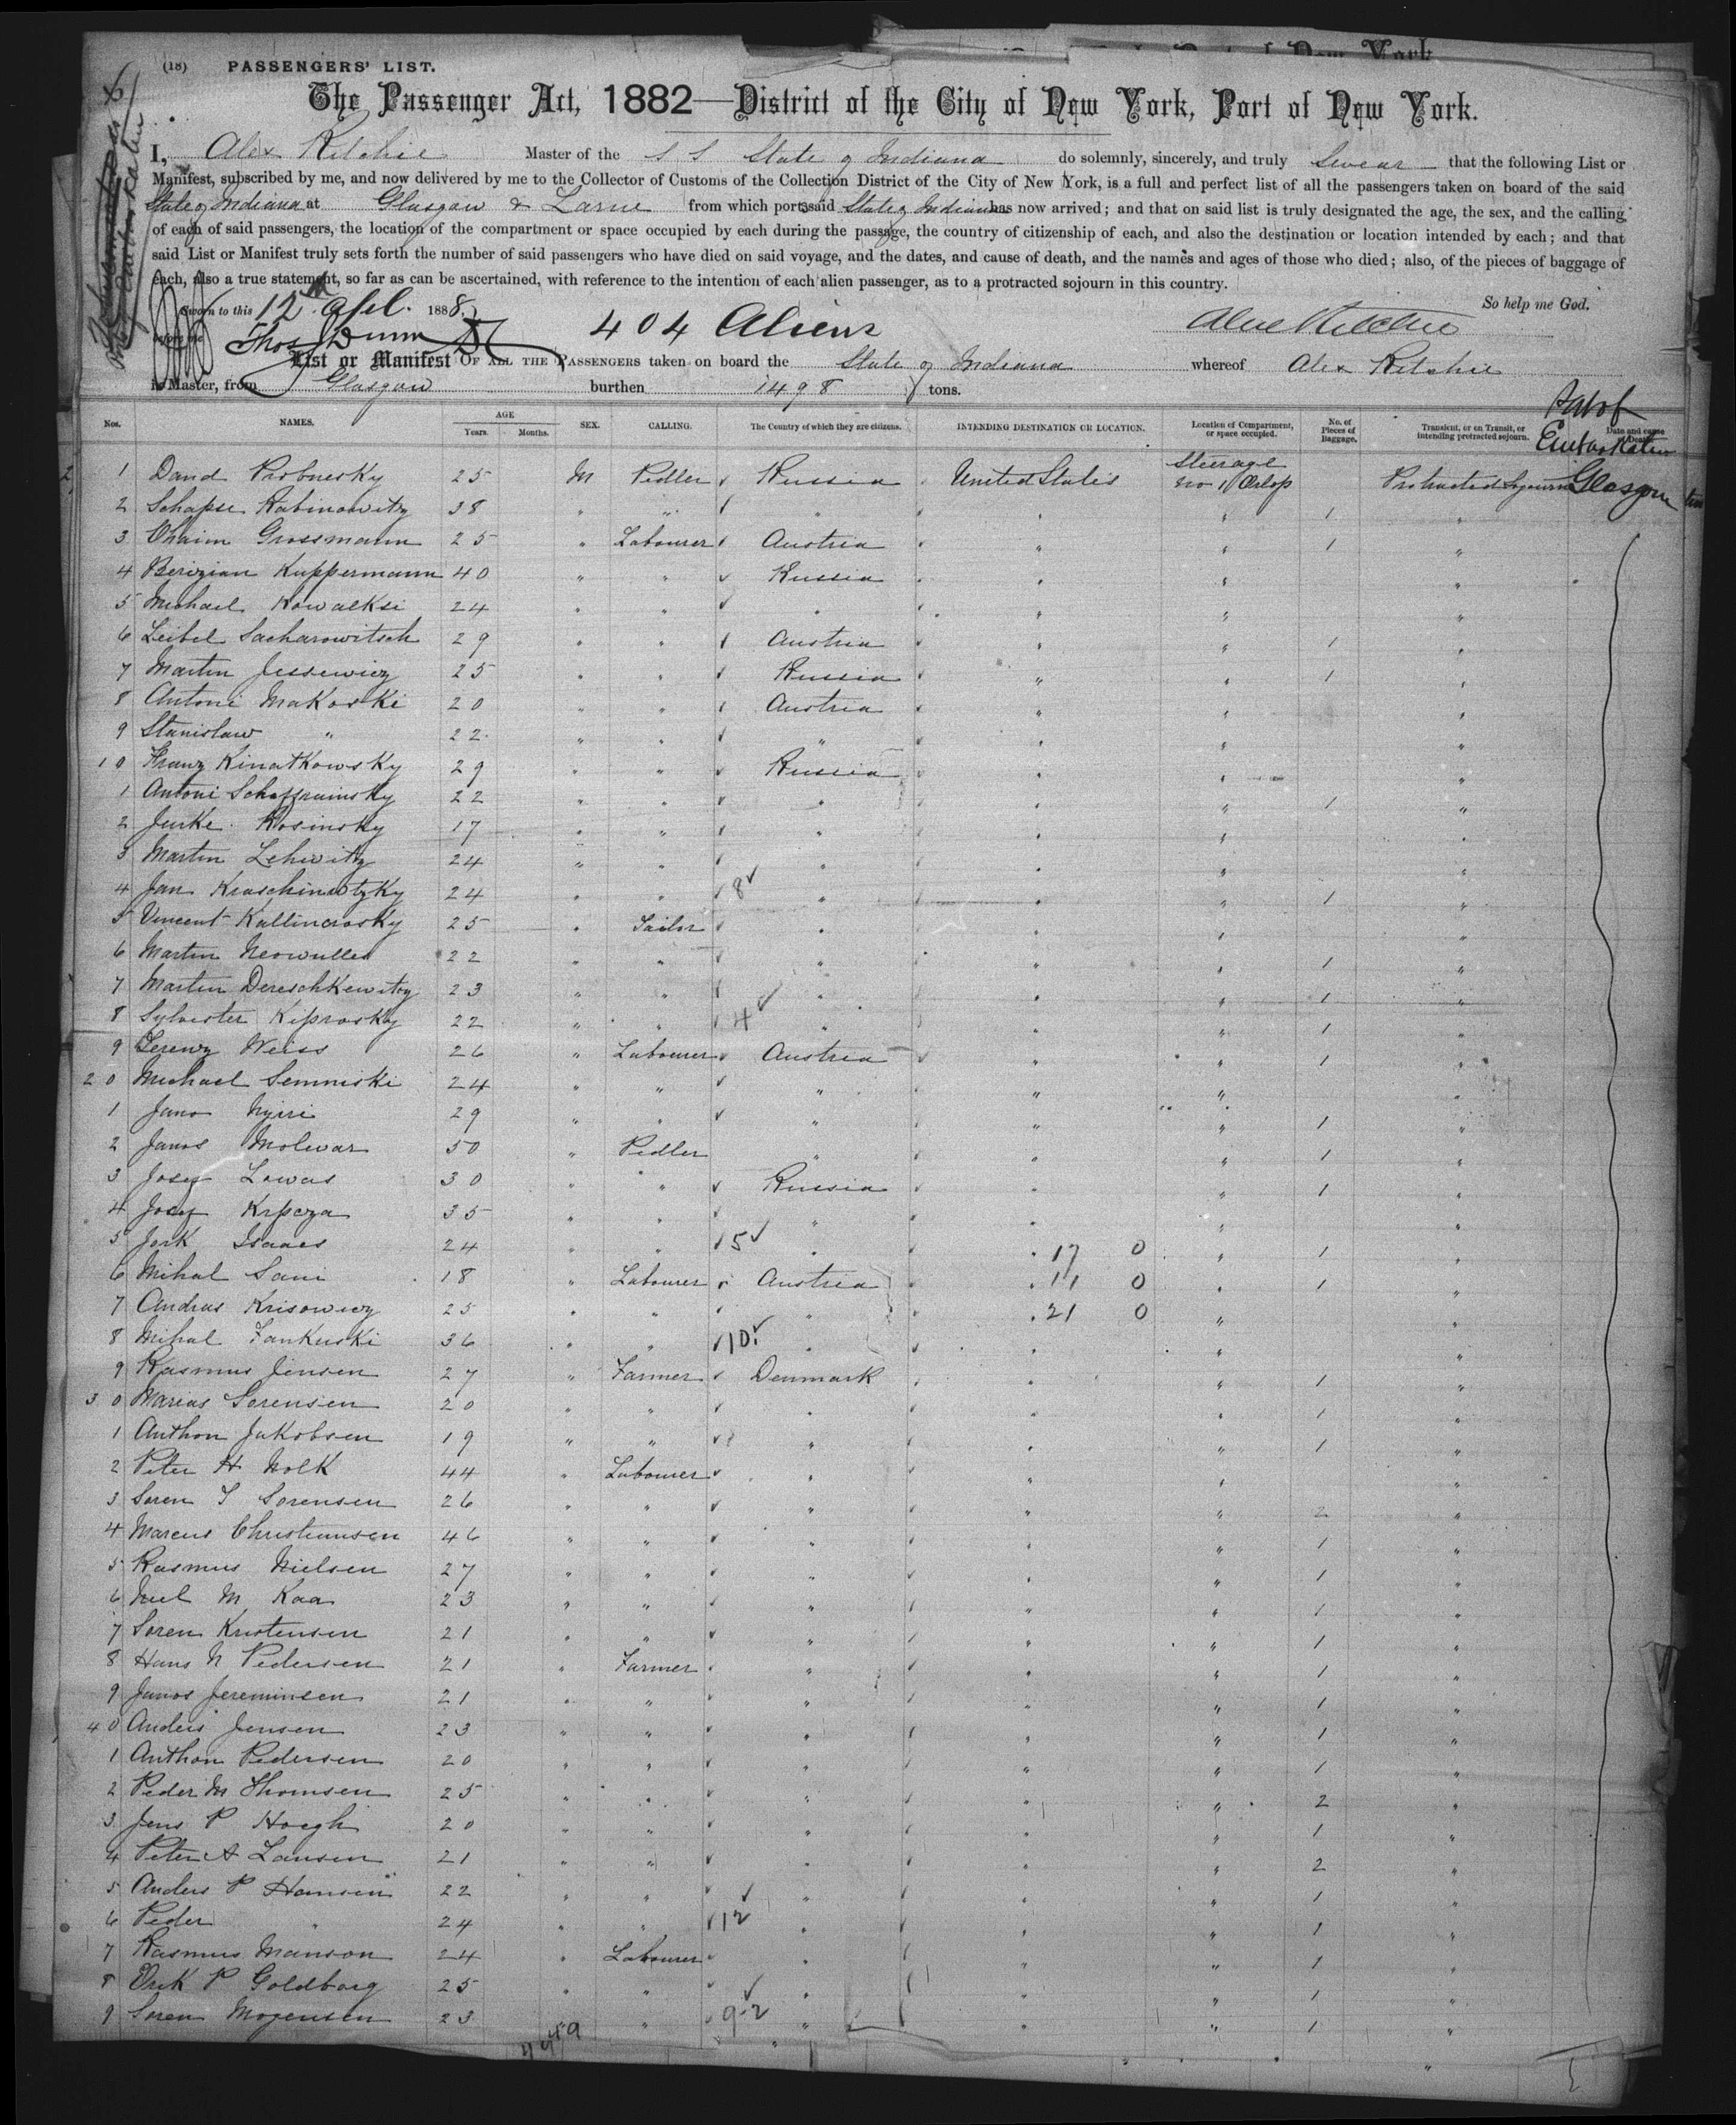 (18) PASSENGERS' LIST.
The Passenger Act, 1882—District of the City of New York, Port of New York.
I, Alex Ritchie Master of the S S State of Indiana do solemnly, sincerely, and truly Swear that the following List or
Manifest, subscribed by me, and now delivered by me to the Collector of Customs of the Collection District of the City of New York, is a full and perfect list of all the passengers taken on board of the said
State of Indiana at Glasgow & Larne from which port said State of Indiana has now arrived; and that on said list is truly designated the age, the sex, and the calling
of each of said passengers, the location of the compartment or space occupied by each during the passage, the country of citizenship of each, and also the destination or location intended by each; and that
said List or Manifest truly sets forth the number of said passengers who have died on said voyage, and the dates, and cause of death, and the names and ages of those who died; also, of the pieces of baggage of
each, also a true statement, so far as can be ascertained, with reference to the intention of each alien passenger, as to a protracted sojourn in this country.
So help me God.
Sworn to this 12 Apl. 1888
before me Thos Dunn 404 Aliens Alex Ritchie
List or Manifest OF ALL THE PASSENGERS taken on board the State of Indiana whereof Alex Ritchie
is Master, from Glasgow burthen 1498 tons.
Port of Embarkation
Nos. NAMES. AGE Years. Months. SEX. CALLING. The Country of which they are citizens. INTENDING DESTINATION OR LOCATION. Location of Compartment, or space occupied. No. of Pieces of Baggage. Transient, or on Transit, or intending protracted sojourn. Date and cause of Death
1 David 25 M Pedler Russia United States Steerage No 1 Orlop Protracted Sojourn Glasgow
2 Schapse Rabinowitz 38 " " " " " 1 "
3 Chaim Grossmann 25 " Labourer Austria " " 1 "
4 Kuppermann 40 " " Russia " " "
5 Michael Kowalksi 24 " " " " " "
6 Leibel Sacharowitsch 29 " " Austria " " 1 "
7 Martin Jessewicz 25 " " Russia " " 1 "
8 Antoni Makoski 20 " " Austria " " "
9 Stanislaw " 22 " " " " " "
10 Franz Kinatkowsky 29 " " Russia " " "
1 Antoni 22 " " " " " 1 "
2 Rosinsky 17 " " " " " "
3 Martin Lehwitz 24 " " " " " "
4 Jan 24 " " 8 " " " 1 "
5 Vincent 25 " Tailor " " " "
6 Martin 22 " " " " " 1 "
7 Martin Dereschkewitz 23 " " " " " 1 "
8 Sylvester Kiprosky 22 " " 4 " " " 1 "
9 Weiss 26 " Labourer Austria " " 1 "
20 Michael Semniski 24 " " " " " "
1 Jano Nyiri 29 " " " " " 1 "
2 Janos Molwar 50 " Pedler " " " 1 "
3 Josef Lowas 30 " " Russia " " 1 "
4 Josef 35 " " " " " "
5 Jork Isaacs 24 " " 5 " " 17 0 " 1 "
6 Mihal Sani 18 " Labourer Austria " 11 0 " 1 "
7 Andras Krisowicz 25 " " " " 21 0 " "
8 Mihal Fankuski 36 " " 10 " " " "
9 Rasmus Jensen 27 " Farmer Denmark " " 1 "
30 Marius Sorensen 20 " " " " " 1 "
1 Anthon Jakobsen 19 " " " " " 1 "
2 Peter H Molk 44 " Labourer " " " "
3 Soren S Sorensen 26 " " " " " 2 "
4 Marcus Christiansen 46 " " " " " 1 "
5 Rasmus Nielsen 27 " " " " " 1 "
6 Niel M Kaa 23 " " " " " 1 "
7 Soren Kristensen 21 " " " " " 1 "
8 Hans N Pedersen 21 " Farmer " " " 1 "
9 Janos Jereminsen 21 " " " " " 1 "
40 Anders Jensen 23 " " " " " 1 "
1 Anthon Pedersen 20 " " " " " 1 "
2 Peder M Thomsen 25 " " " " " 2 "
3 Jens P Hoegh 20 " " " " " 1 "
4 Peter A Lausen 21 " " " " " 2 "
5 Anders P Hansen 22 " " " " " 1 "
6 Peder " 24 " " 12 " " " 1 "
7 Rasmus Manson 24 " Labourer " " " 1 "
8 Erik P Goldborg 25 " " " " " 1 "
9 Soren Mogensen 23 " " 9-2 " " " 1 "